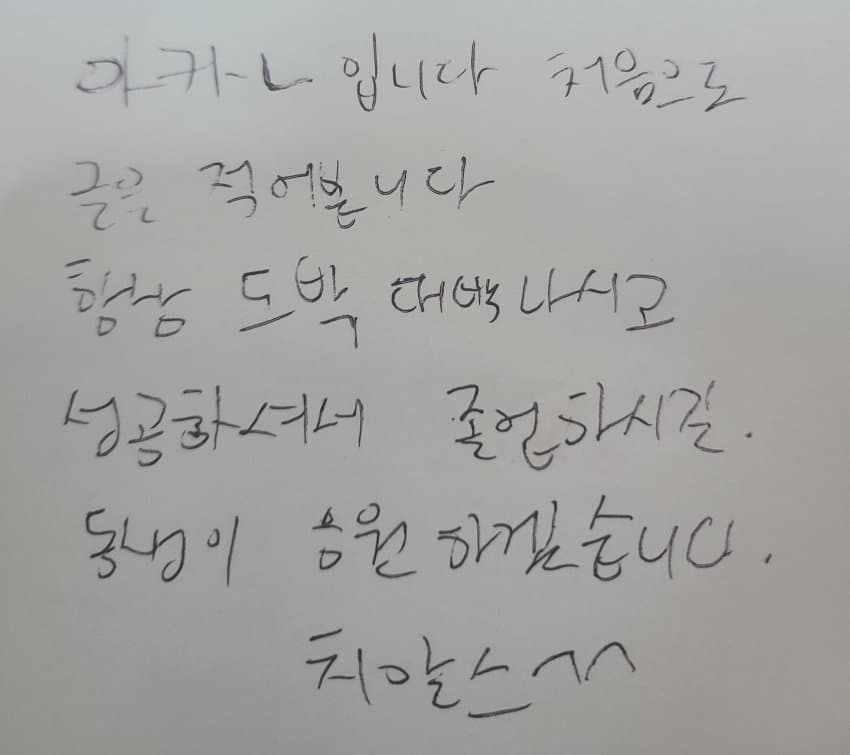 아귀-노 입니다 처음으로
글은 적어봅니다
항상 도박 대박나시고
성공하셔서 졸업하시길.
동생이 응원 하겠습니다.
치얼스^^